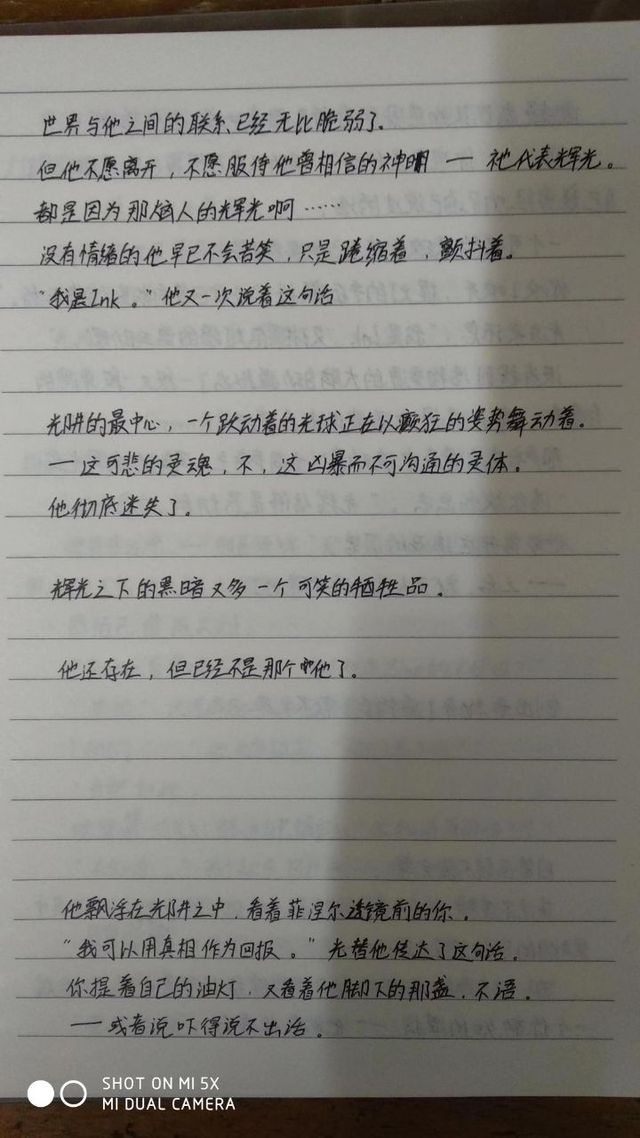 世界与他之间的联系已经无比脆弱了。
但他不愿离开，不愿服侍他曾相信的神明 — 祂代表辉光。
都是因为那恼人的辉光啊……
没有情绪的他早已不会苦笑，只是蜷缩着，颤抖着。
“我是Ink。”他又一次说着这句话
光阱的最中心，一个跃动着的光球正在以癫狂的姿势舞动着。
—这可悲的灵魂，不，这凶暴而不可沟通的灵体。
他彻底迷失了。
辉光之下的黑暗又多一个可笑的牺牲品。
他还存在，但已经不是那个他了。
他飘浮在光阱之中，看着菲涅尔透镜前的你。
“我可以用真相作为回报。”光替他传达了这句话。
你提着自己的油灯，又看着他脚下的那盏，不语。
—或者说吓得说不出话。
SHOT ON MI 5X
MI DUAL CAMERA